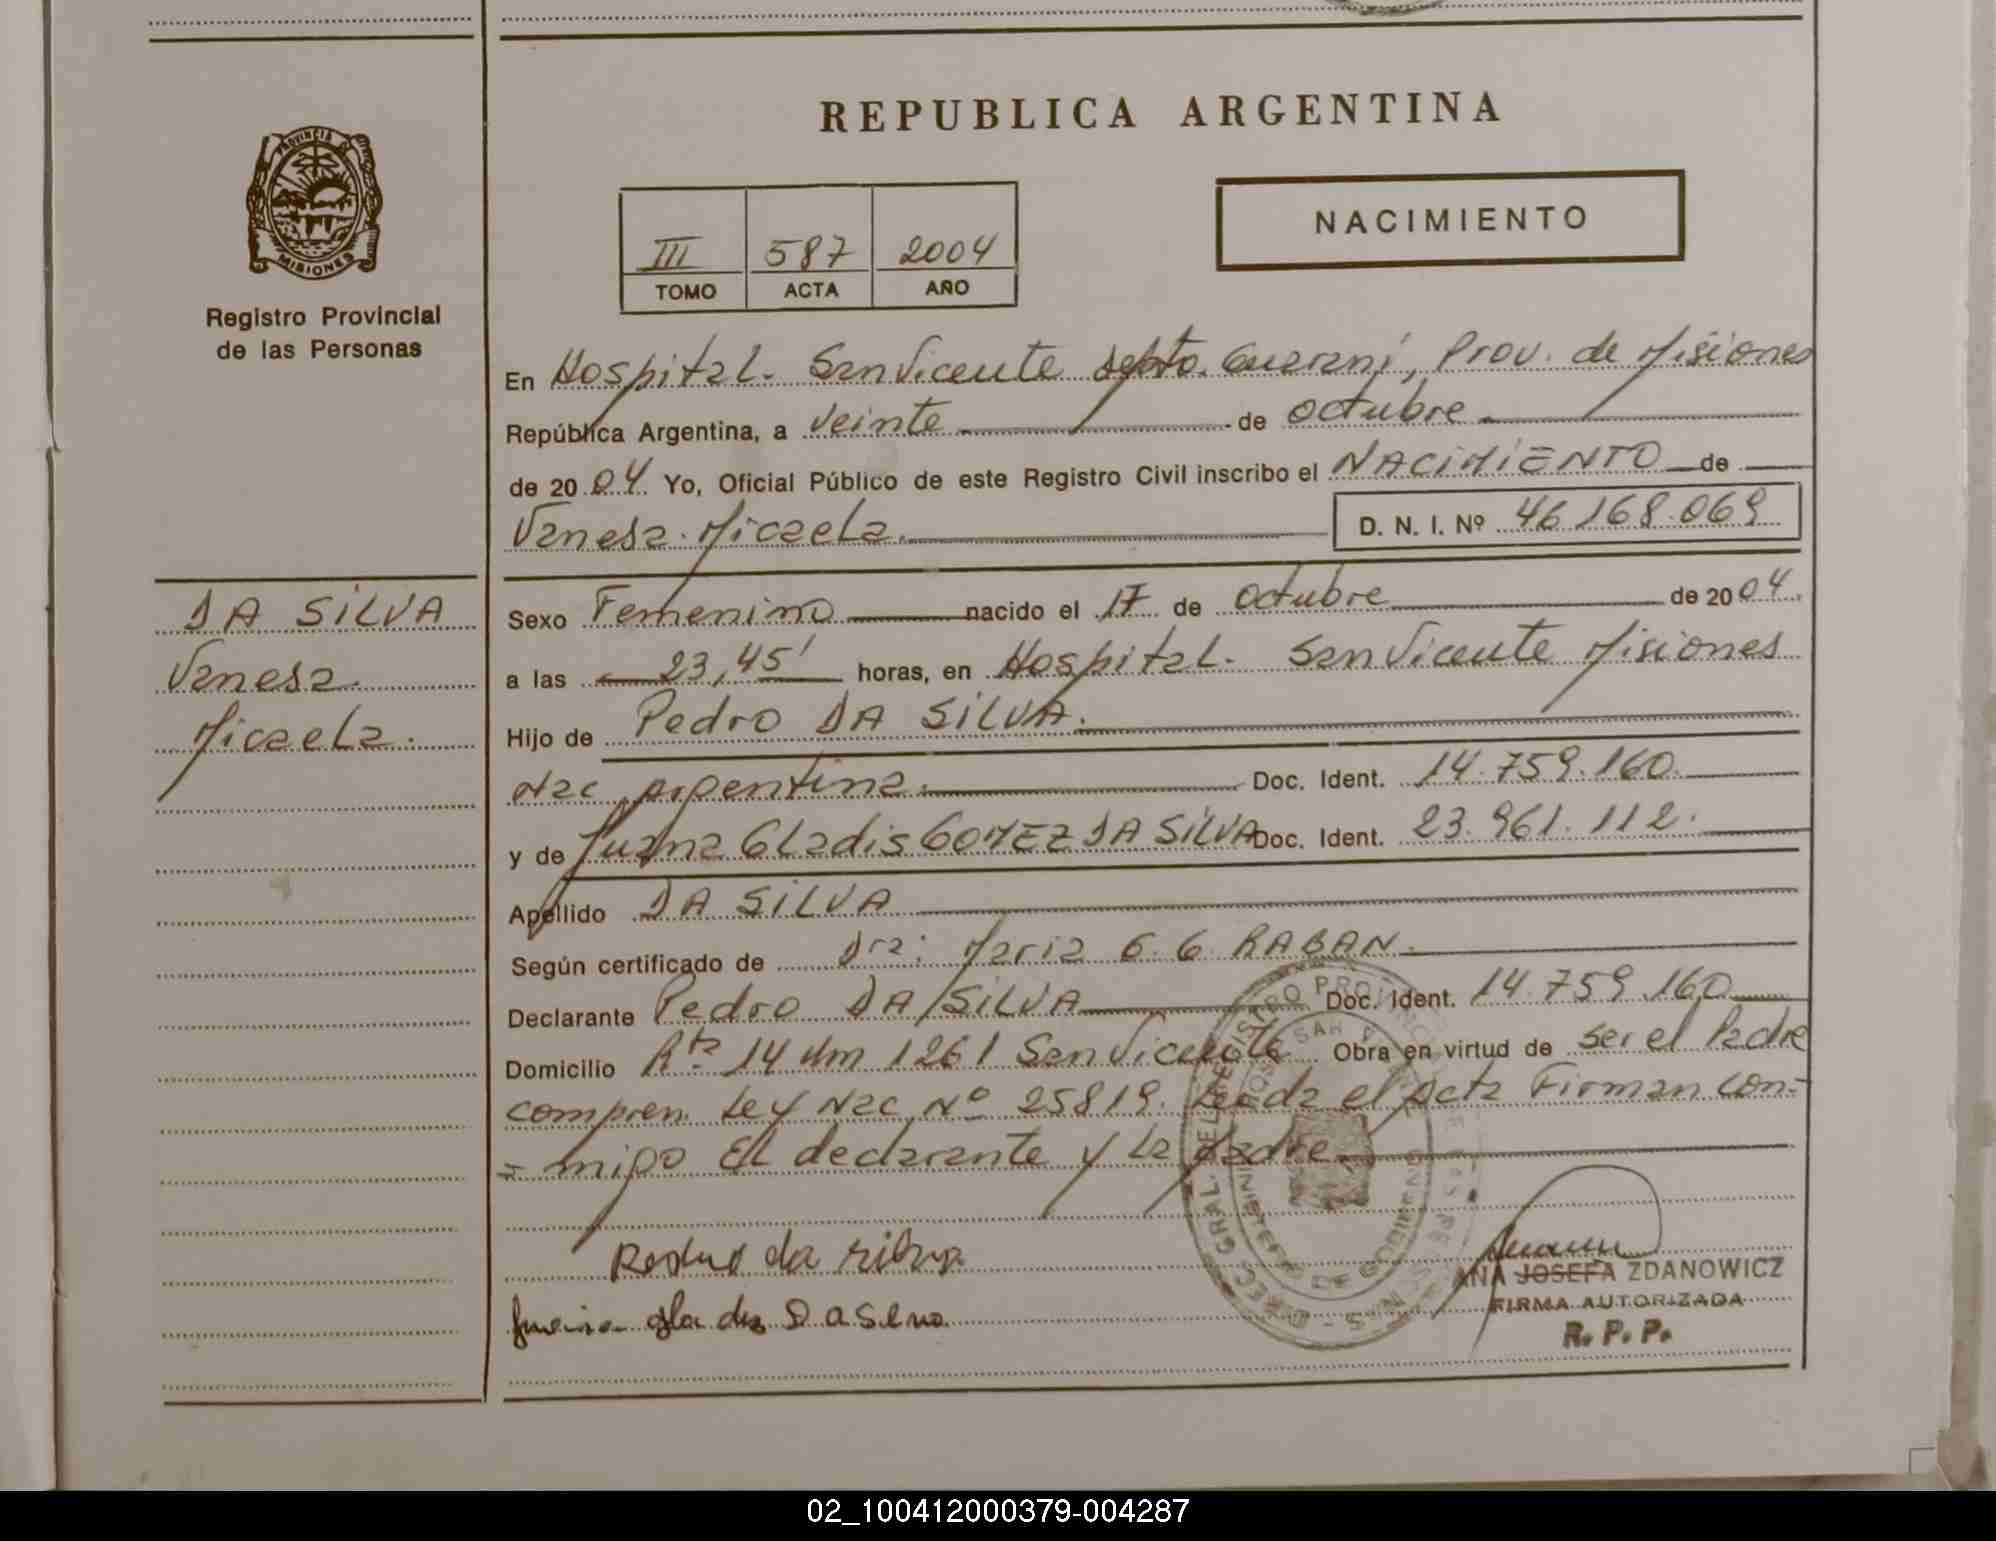 REPUBLICA ARGENTINA
PROVINCIA DE
MISIONES
Registro Provincial
de las Personas
III 587 2004
TOMO ACTA AÑO
NACIMIENTO
En Hospital. San Vicente depto. Guarani, Prov. de Misiones
República Argentina, a veinte de octubre
de 2004 Yo, Oficial Público de este Registro Civil inscribo el NACIMIENTO de
Vanesa Micaela. D. N. I. Nº 46.168.069
DA SILVA
Vanesa
Micaela.
Sexo Femenino nacido el 17 de octubre de 2004.
a las 23,45' horas, en Hospital. San Vicente Misiones
Hijo de Pedro DA SILVA.
Nac Argentina. Doc. Ident. 14.759.160.
y de Juana Gladis GOMEZ DA SILVA Doc. Ident. 23.961.112.
Apellido DA SILVA
Según certificado de Dra: Maria G. G. RABAN.
Declarante Pedro DA SILVA Doc. Ident. 14.759.160
Domicilio Rta. 14 Km 1261 San Vicente Obra en virtud de ser el Padre
compren. Ley Nac Nº 25819. Leida el Acta Firman con-
= migo El declarante y la Madre
Pedro da silva
gladis Da Silva
ANA JOSEFA ZDANOWICZ
FIRMA AUTORIZADA
R. P. P.
02_100412000379-004287